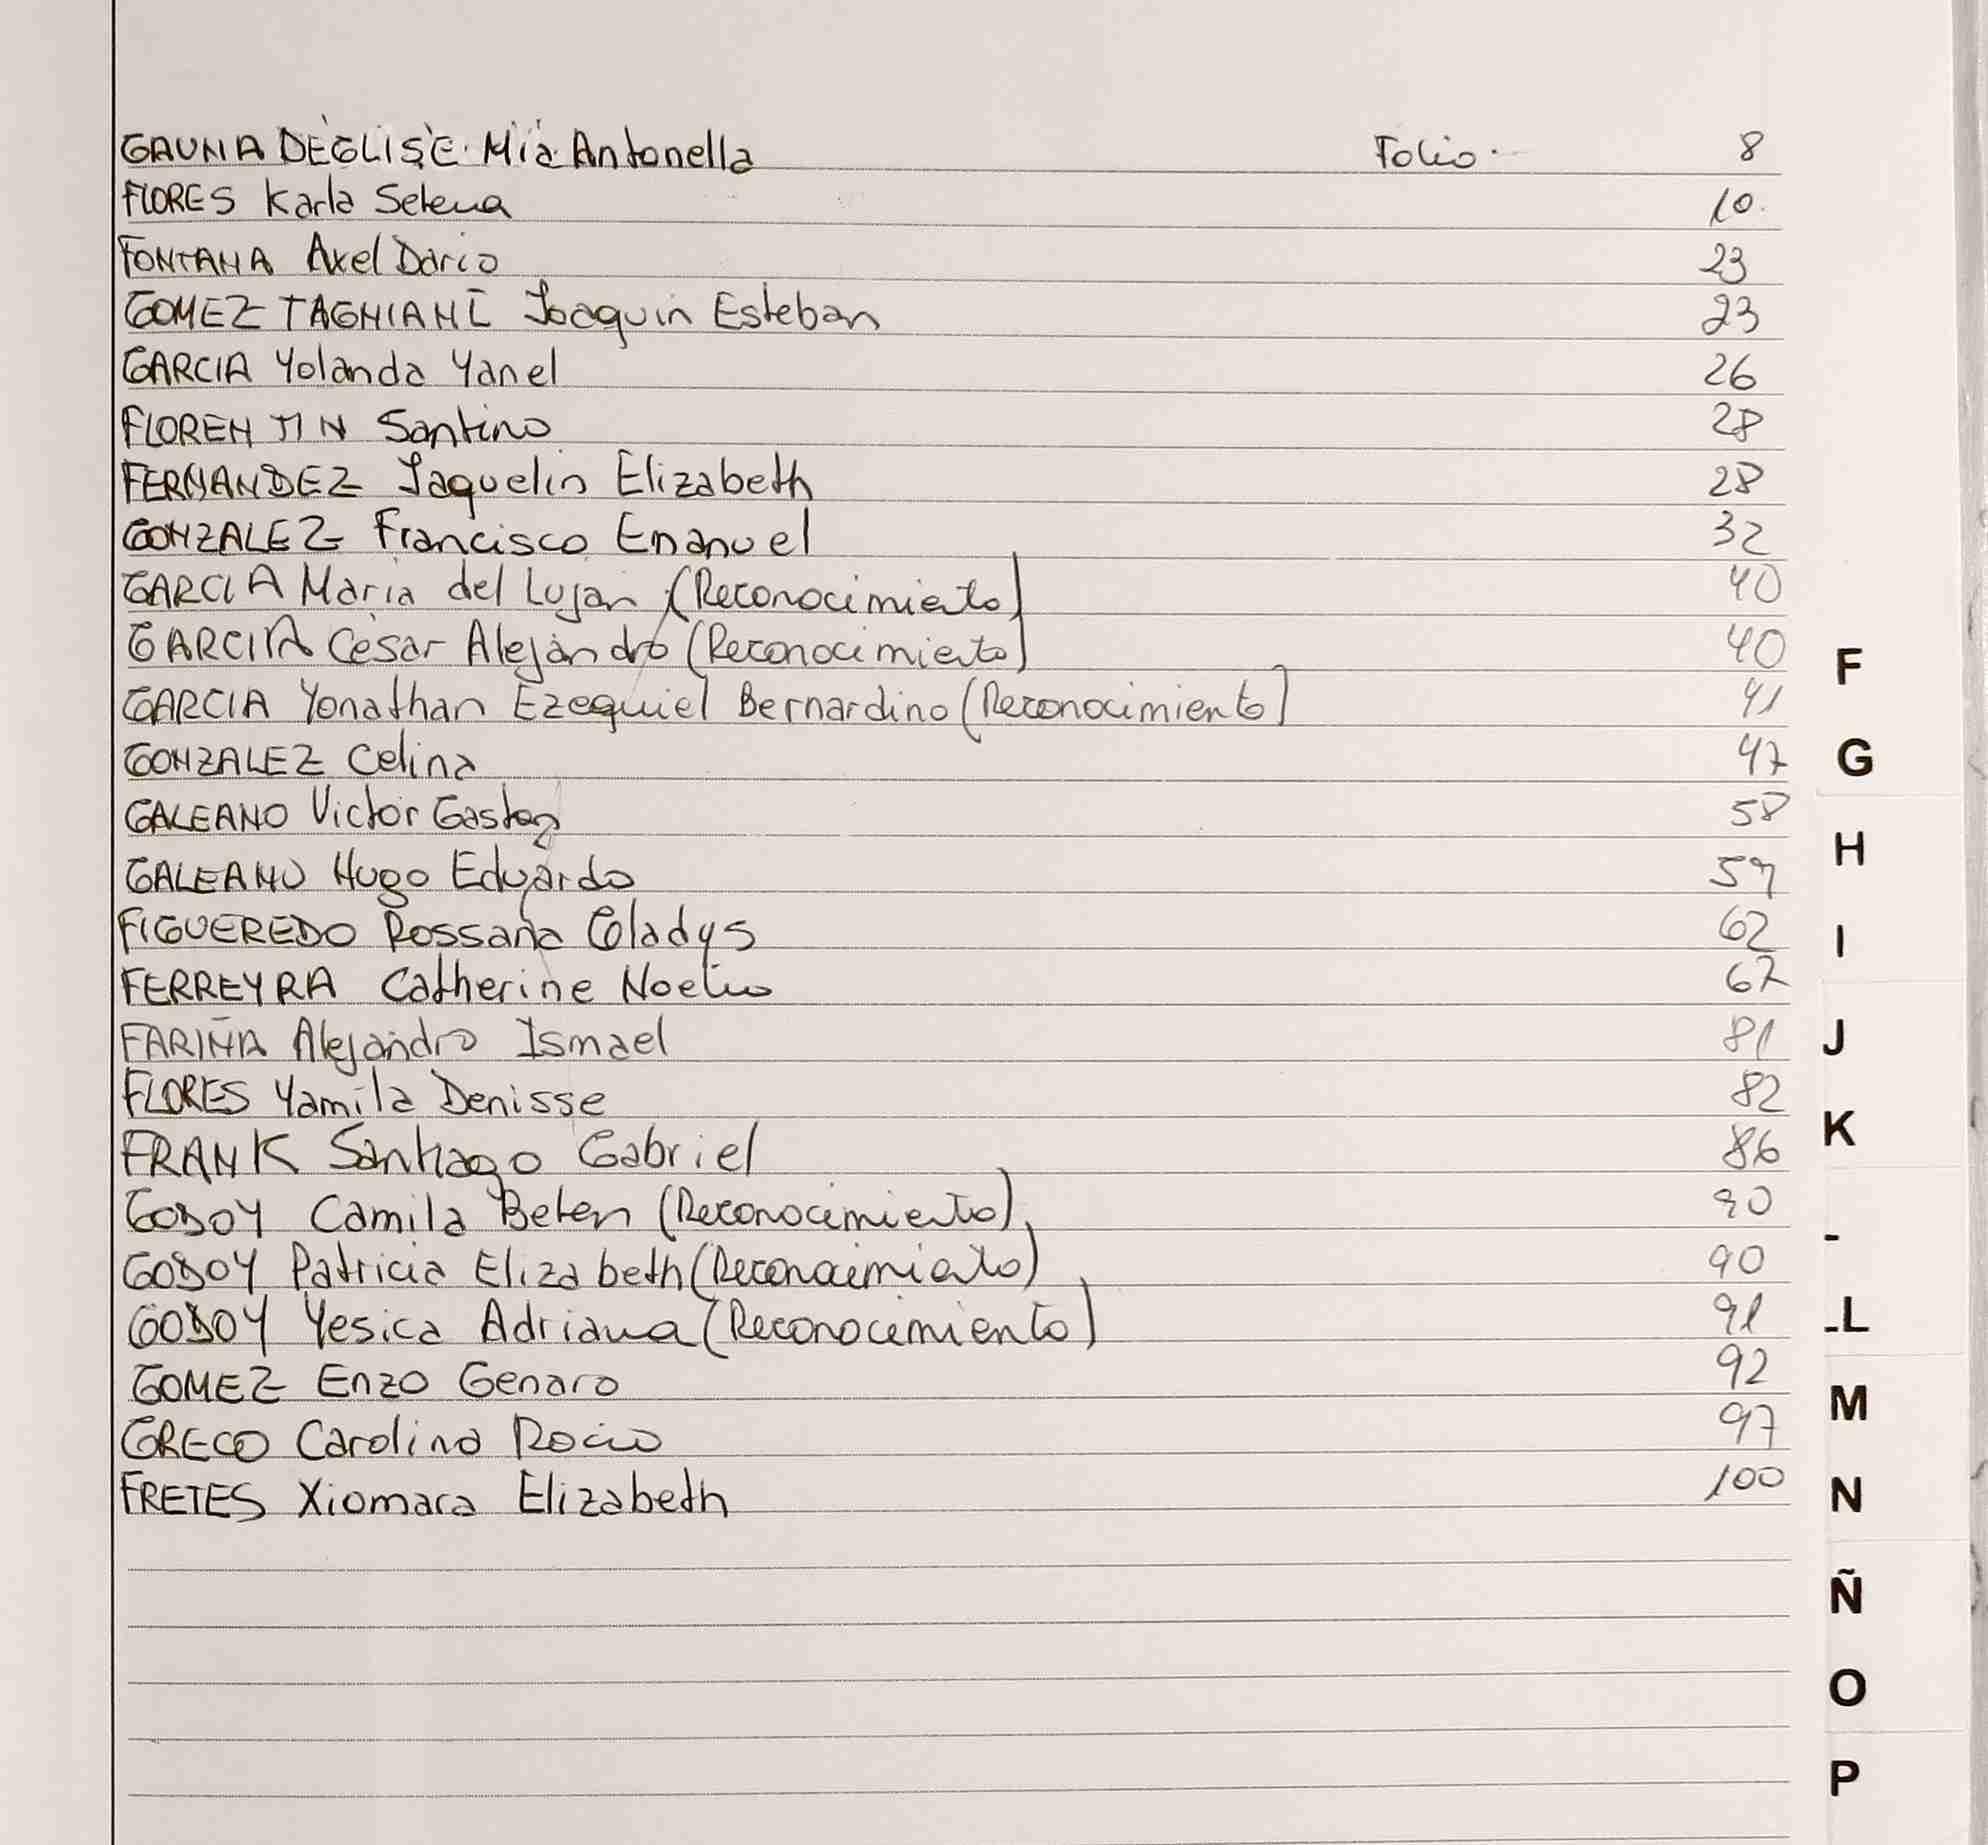 GAUNA DEGLISE Mia Antonella Folio 8
FLORES Karla Selena 10
FONTANA Axel Dario 23
GOMEZ TAGNIANI Joaquin Esteban 23
GARCIA Yolanda Yanel 26
FLORENTIN Santino 28
FERNANDEZ Jaquelin Elizabeth 28
GONZALEZ Francisco Emanuel 32
GARCIA Maria del Lujan (Reconocimiento) 40
GARCIA Cesar Alejandro (Reconocimiento) 40
GARCIA Yonathan Ezequiel Bernardino (Reconocimiento) 41
GONZALEZ Celina 47
GALEANO Victor Gaston 58
GALEANO Hugo Eduardo 59
FIGUEREDO Rossana Gladys 62
FERREYRA Catherine Noelia 67
FARIÑA Alejandro Ismael 81
FLORES Yamila Denisse 82
FRANK Santiago Gabriel 86
GODOY Camila Belen (Reconocimiento) 90
GODOY Patricia Elizabeth (Reconocimiento) 90
GODOY Yesica Adriana (Reconocimiento) 91
GOMEZ Enzo Genaro 92
GRECO Carolina Rocio 97
FRETES Xiomara Elizabeth 100
F
G
H
I
J
K
-
-L
M
N
Ñ
O
P